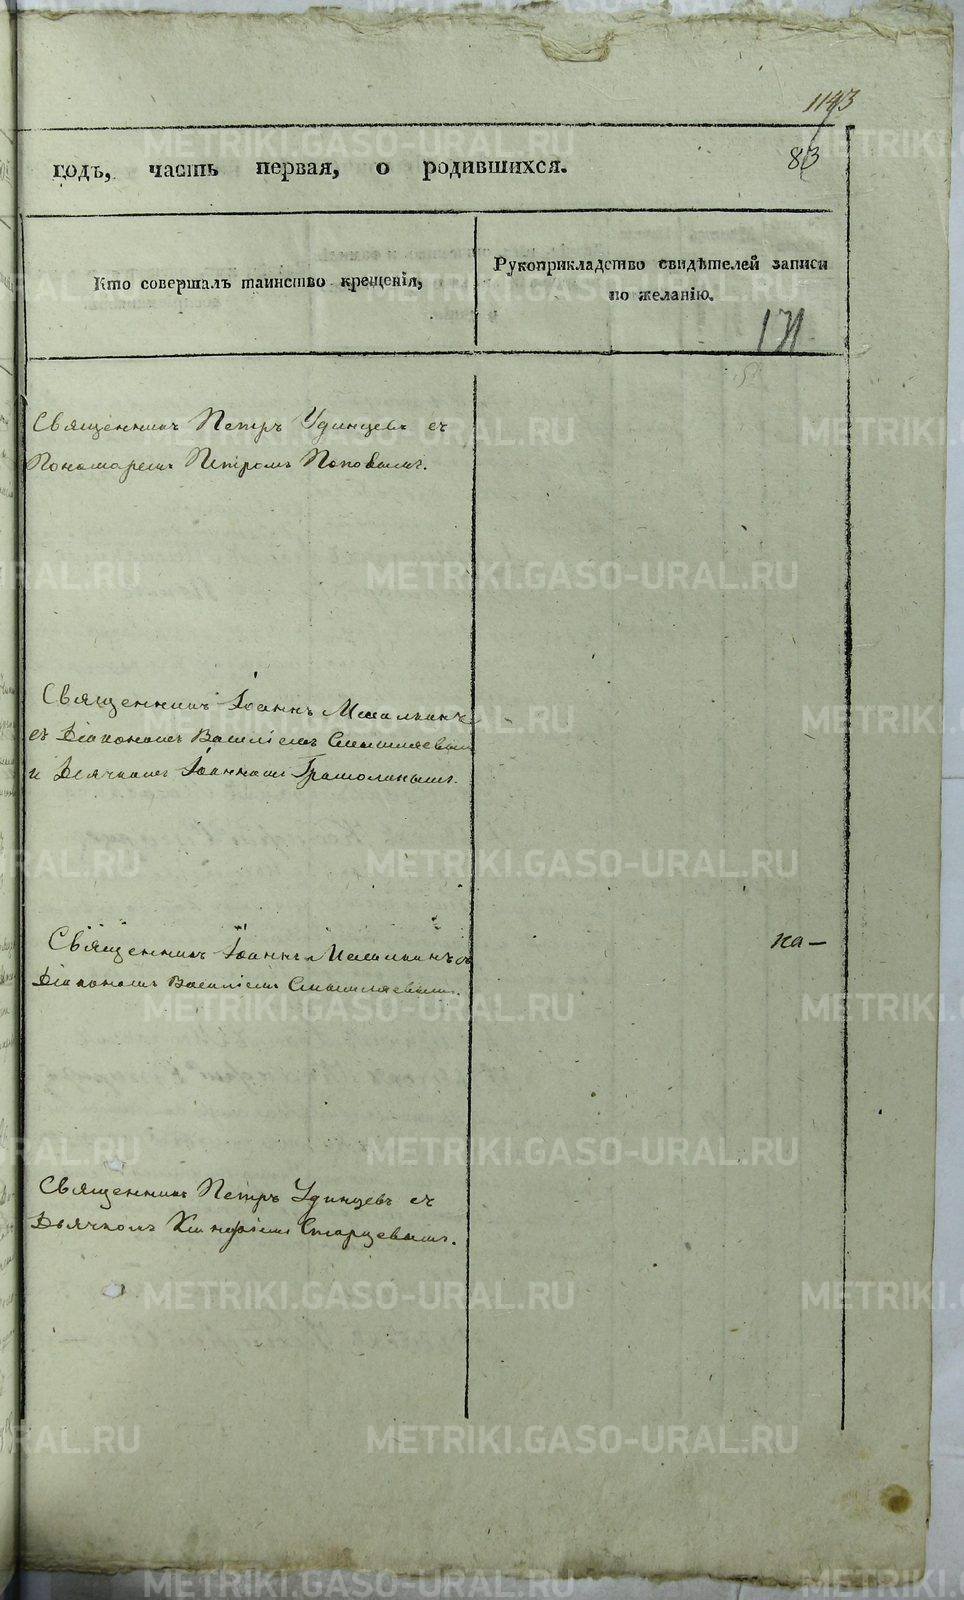 1143
83
годъ, часть первая, о родившихся.
Кто совершалъ таинство крещенія,
Рукоприкладство свидѣтелей записи
по желанію.
171
Священникъ Петръ Удинцевъ съ
Пономаремъ Петромъ Поповымъ.
Священникъ Іоаннъ
съ Діакономъ Василіемъ Смышляевымъ
и Дьячкомъ Іоанномъ
Священникъ Іоаннъ съ
Діакономъ Василіемъ Смышляевымъ.
на—
Священникъ Петръ Удинцевъ съ
Дьячкомъ Старцевымъ.
METRIKI.GASO-URAL.RU